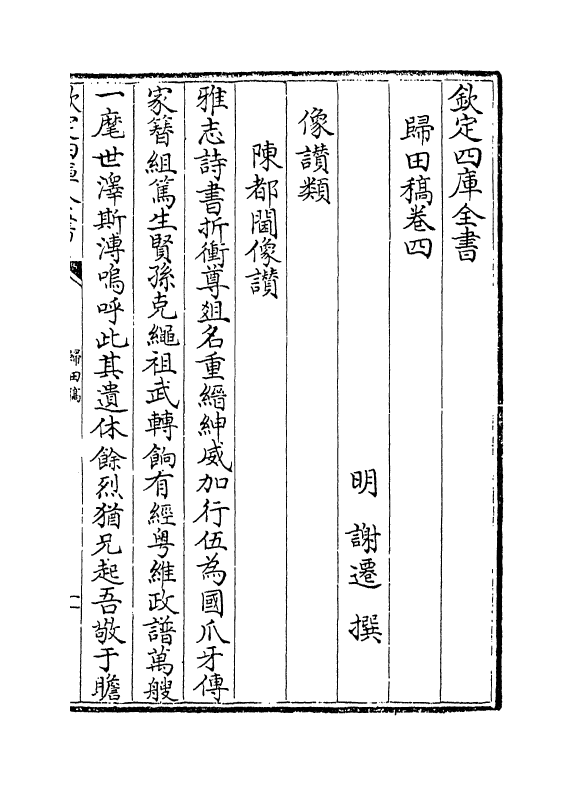 欽定四庫全書
歸田稿卷四
明 謝遷 撰
像讃類
陳都閫像讃
雅志詩書折衝尊爼名重縉紳威加行伍為國爪牙傳
家簮組篤生賢孫克繩祖武轉餉有經粤維政譜萬艘
一麾世澤斯溥嗚呼此其遺休餘烈猶兄起吾敬于瞻
欽定四庫全書
歸田稿
一